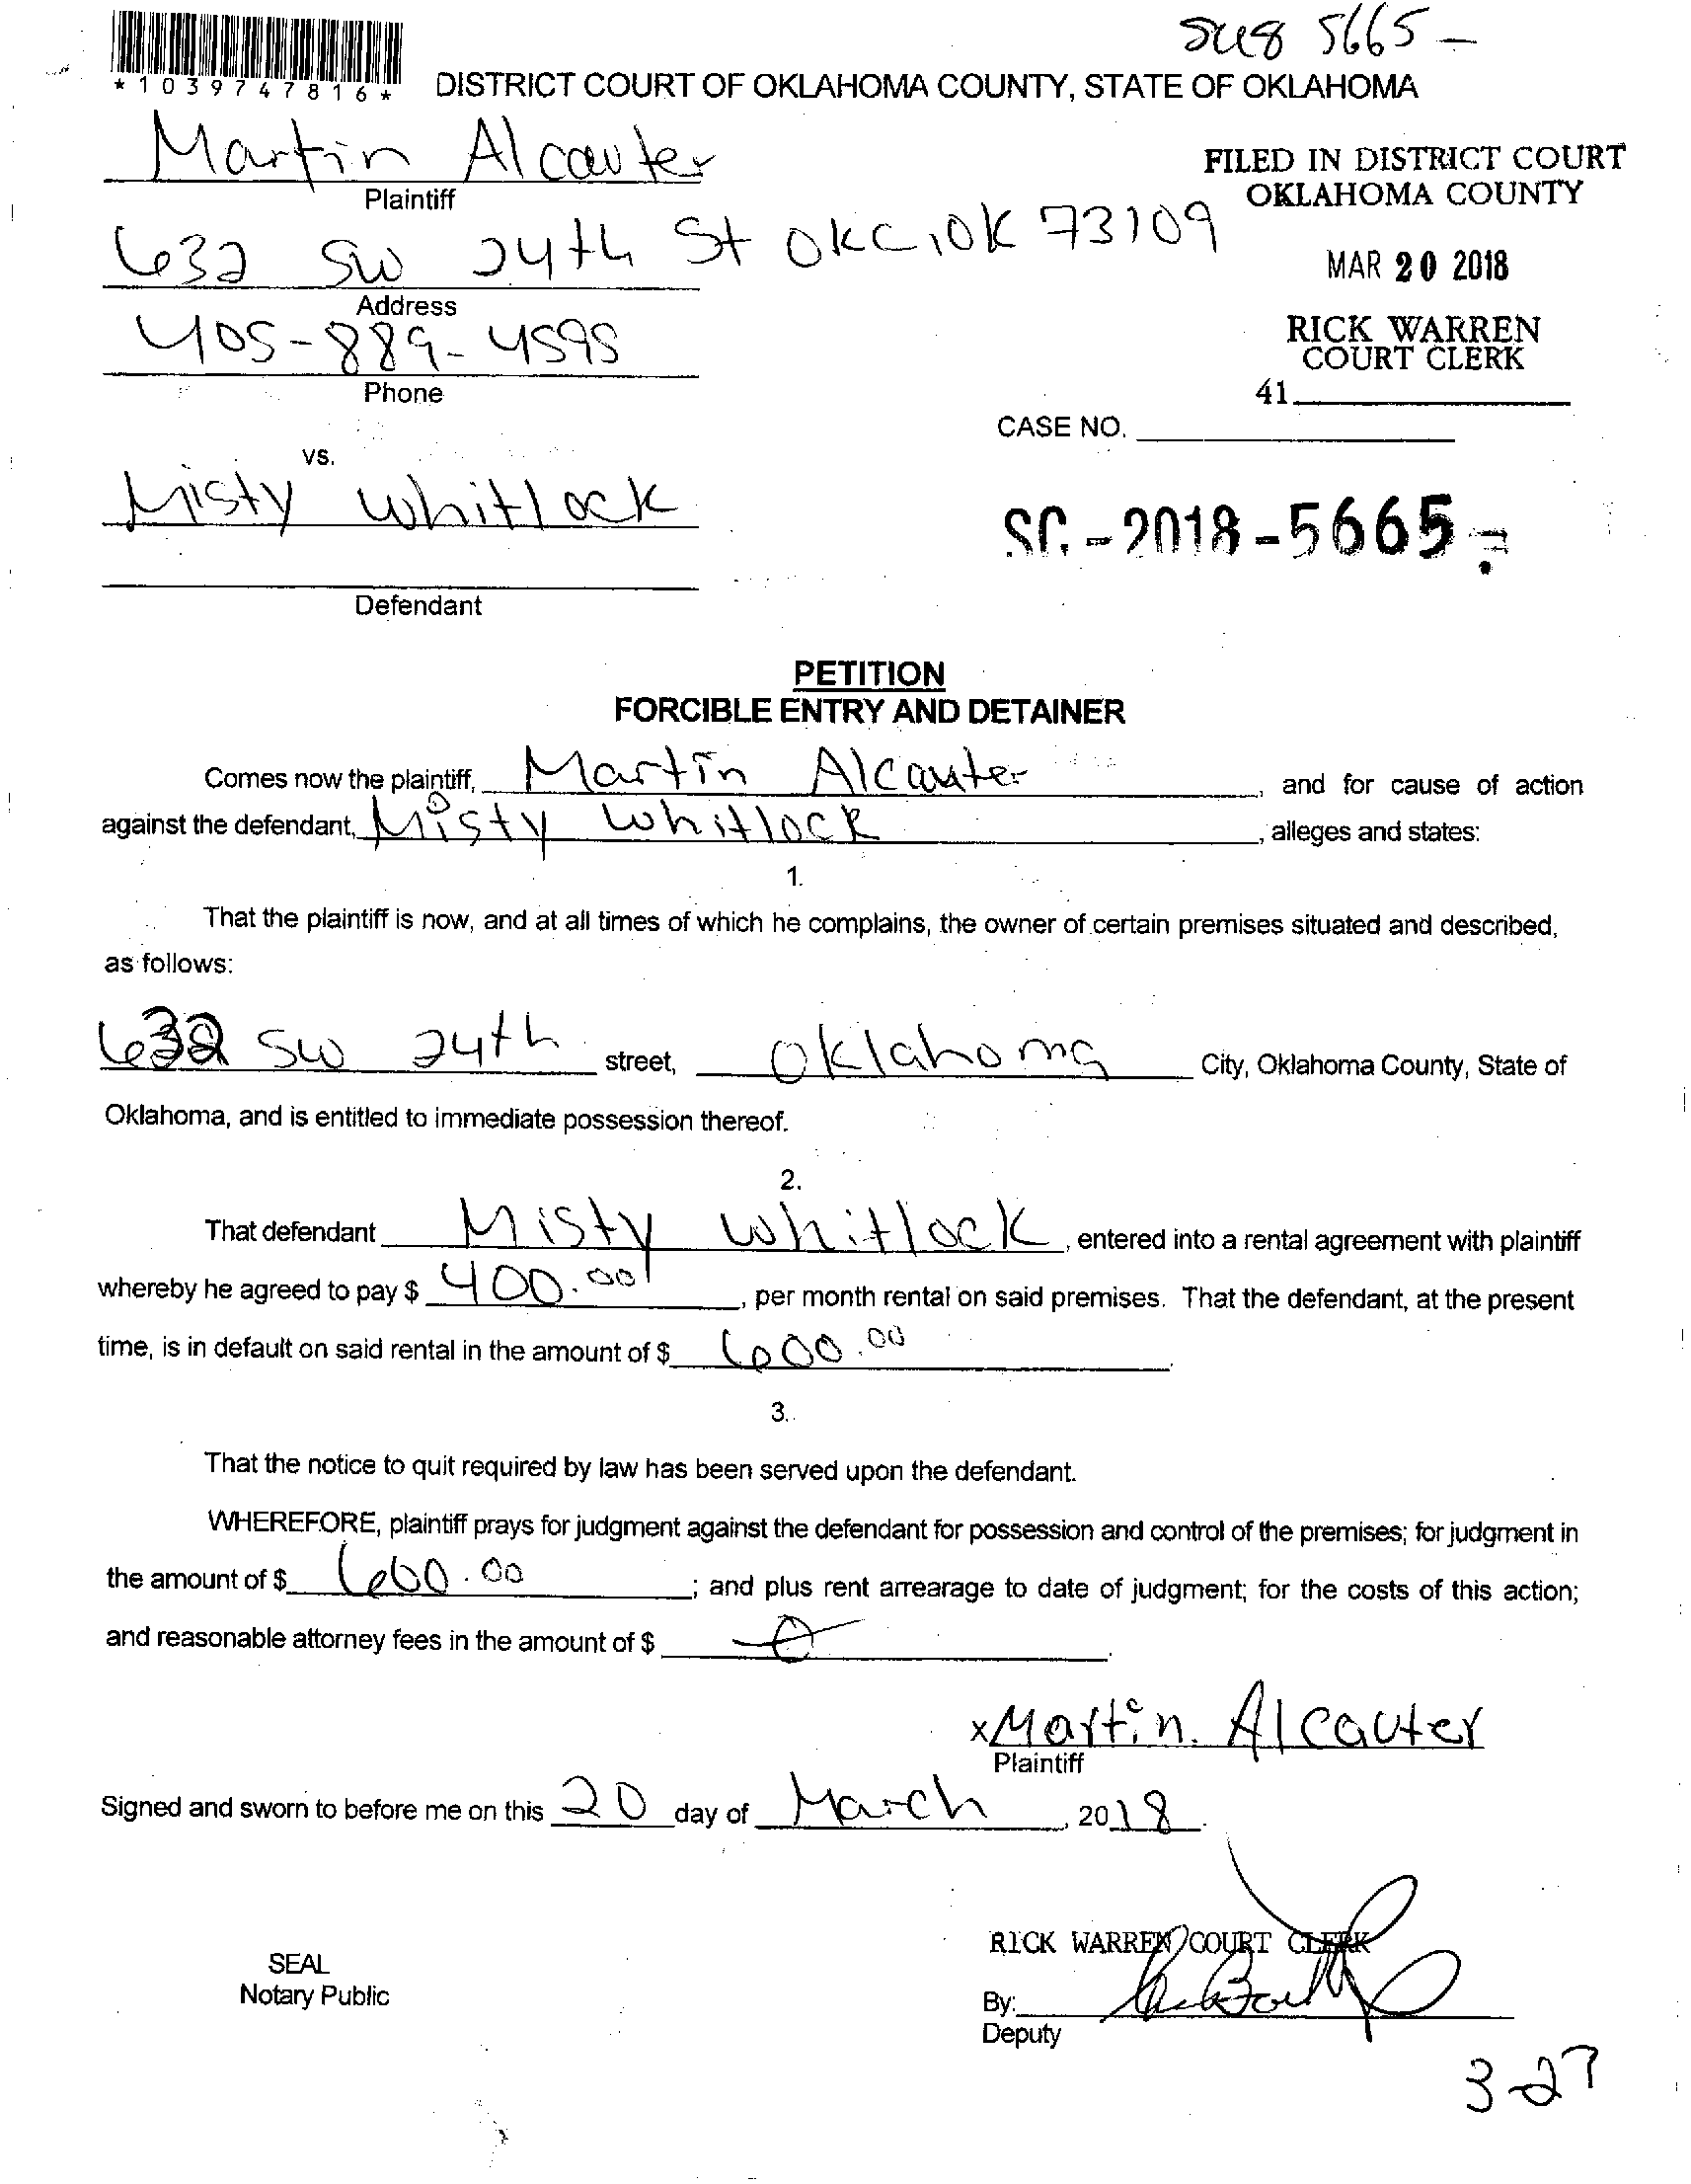 SC18 5665 -
*1039747816*
DISTRICT COURT OF OKLAHOMA COUNTY, STATE OF OKLAHOMA
Martin Alcauter
Plaintiff
FILED IN DISTRICT COURT
OKLAHOMA COUNTY
632 SW 24th St OKC, OK 73109
Address
MAR 20 2018
405-889-4595
Phone
RICK WARREN
COURT CLERK
41
CASE NO.
vs.
Misty Whitlock
SC-2018-5665-
Defendant
PETITION
FORCIBLE ENTRY AND DETAINER
Comes now the plaintiff, Martin Alcauter, and for cause of action
against the defendant, Misty Whitlock, alleges and states:
1.
That the plaintiff is now, and at all times of which he complains, the owner of certain premises situated and described,
as follows:
632 SW 24th street, Oklahoma City, Oklahoma County, State of
Oklahoma, and is entitled to immediate possession thereof.
2.
That defendant Misty Whitlock, entered into a rental agreement with plaintiff
whereby he agreed to pay $ 400.00, per month rental on said premises. That the defendant, at the present
time, is in default on said rental in the amount of $ 600.00.
3.
That the notice to quit required by law has been served upon the defendant.
WHEREFORE, plaintiff prays for judgment against the defendant for possession and control of the premises; for judgment in
the amount of $ 600.00; and plus rent arrearage to date of judgment; for the costs of this action;
and reasonable attorney fees in the amount of $ 0.
x Martin. Alcauter
Plaintiff
Signed and sworn to before me on this 20 day of March, 2018.
RICK WARREN COURT CLERK
SEAL
Notary Public
By:
Deputy
3-27